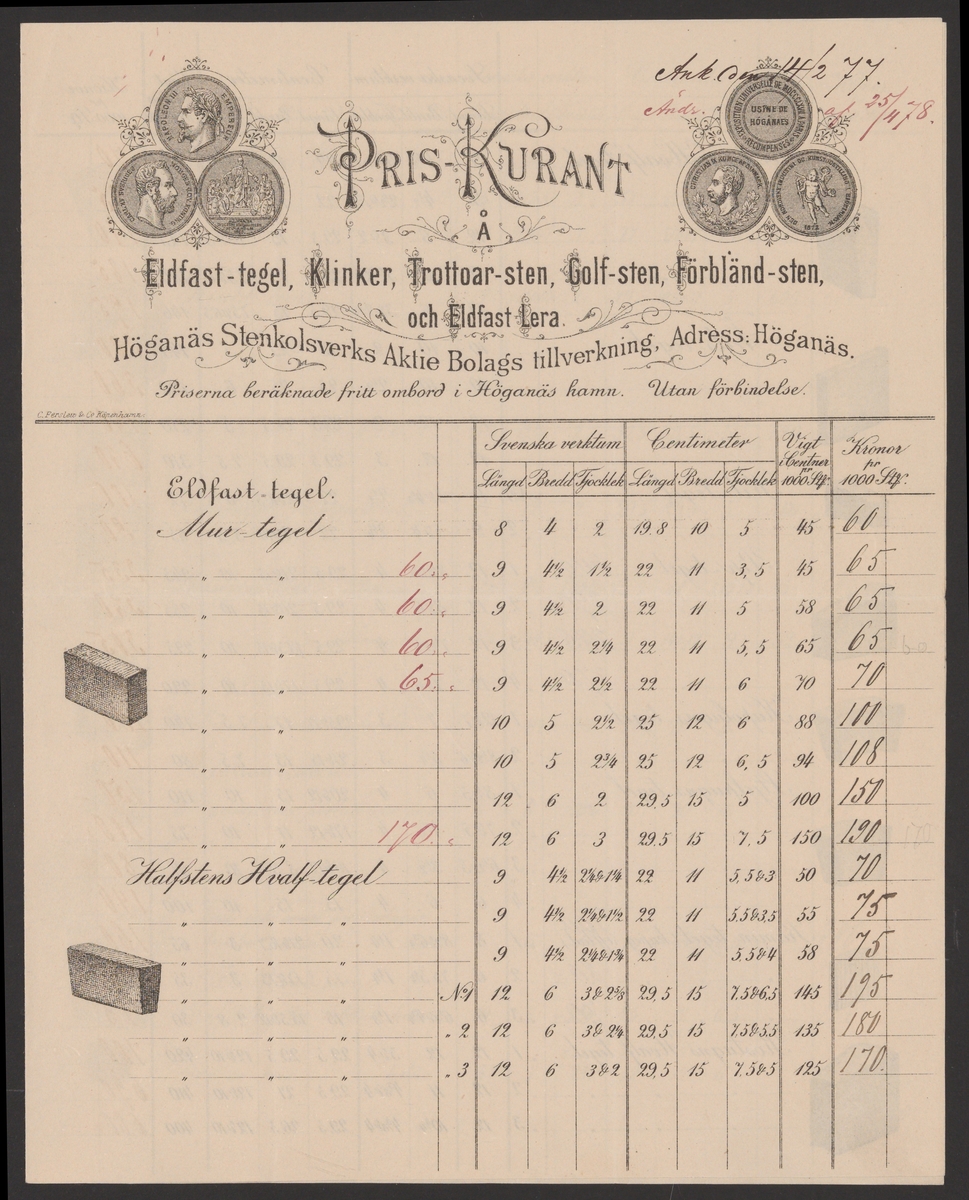 Ank den 14/2 77.
Ändr. 25/4 78.
NAPOLEON III EMPEREUR
EXPOSITION UNIVERSELLE DE MDCCCLXVII A PARIS
RECOMPENSES
USINE DE HÖGANAES
1872
PRIS-KURANT
Å
Eldfast-tegel, Klinker, Trottoar-sten, Golf-sten, Förbländ-sten,
och Eldfast Lera.
Höganäs Stenkolsverks Aktie Bolags tillverkning, Adress: Höganäs.
Priserna beräknade fritt ombord i Höganäs hamn. Utan förbindelse.
C. Ferslew & Co Köpenhamn.
Svenska verktum Centimeter Vigt i Centner pr 1000 Stkr. Kronor pr 1000 Stkr.
Eldfast-tegel. Längd Bredd Tjocklek Längd Bredd Tjocklek
Mur-tegel 8 4 2 19,8 10 5 45 60
„ „ 60. „ 9 4½ 1½ 22 11 3,5 45 65
„ „ 60. „ 9 4½ 2 22 11 5 58 65
„ „ 60. „ 9 4½ 2¼ 22 11 5,5 65 65 60
„ „ 65. „ 9 4½ 2½ 22 11 6 70 70
„ „ 10 5 2½ 25 12 6 88 100
„ „ 10 5 2¾ 25 12 6,5 94 108
„ „ 12 6 2 29,5 15 5 100 150
„ „ 170. „ 12 6 3 29,5 15 7,5 150 190 170
Halfstens Hvalf-tegel 9 4½ 2¼&1¼ 22 11 5,5&3 50 70
„ „ „ 9 4½ 2¼&1½ 22 11 5,5&3,5 55 75
„ „ „ 9 4½ 2¼&1¾ 22 11 5,5&4 58 75
„ „ „ No 1 12 6 3&2⅝ 29,5 15 7,5&6,5 145 195
„ „ „ „ 2 12 6 3&2¼ 29,5 15 7,5&5,5 135 180
„ „ „ „ 3 12 6 3&2 29,5 15 7,5&5 125 170.